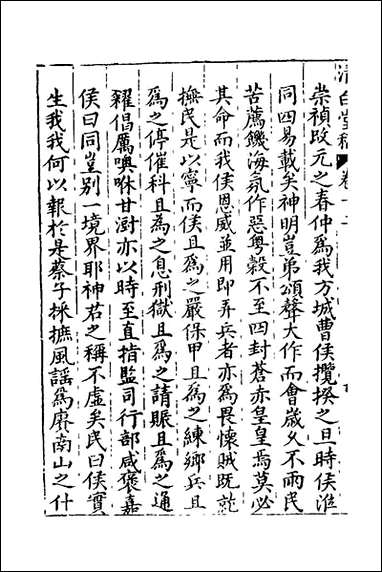 清白堂稿 卷十二
崇禎改元之春仲為我方城曹侯攬揆之旦時侯涖
同四易載矣神明豈弟頌聲大作而會歲乆不雨民
苦薦饑海氛作惡粤穀不至四封蒼赤皇皇焉莫必
其命而我侯恩威並用即弄兵者亦為畏懷賊既就
撫民是以寧而侯且為之嚴保甲且為之練鄉兵且
為之停催科且為之息刑獄且為之請賑且為之通
糴倡厲噢咻甘澍亦以時至直指監司行部咸褒嘉
侯曰同豈别一境界耶神君之稱不虛矣民曰侯實
生我我何以報於是蔡子採摭風謡為賡南山之什